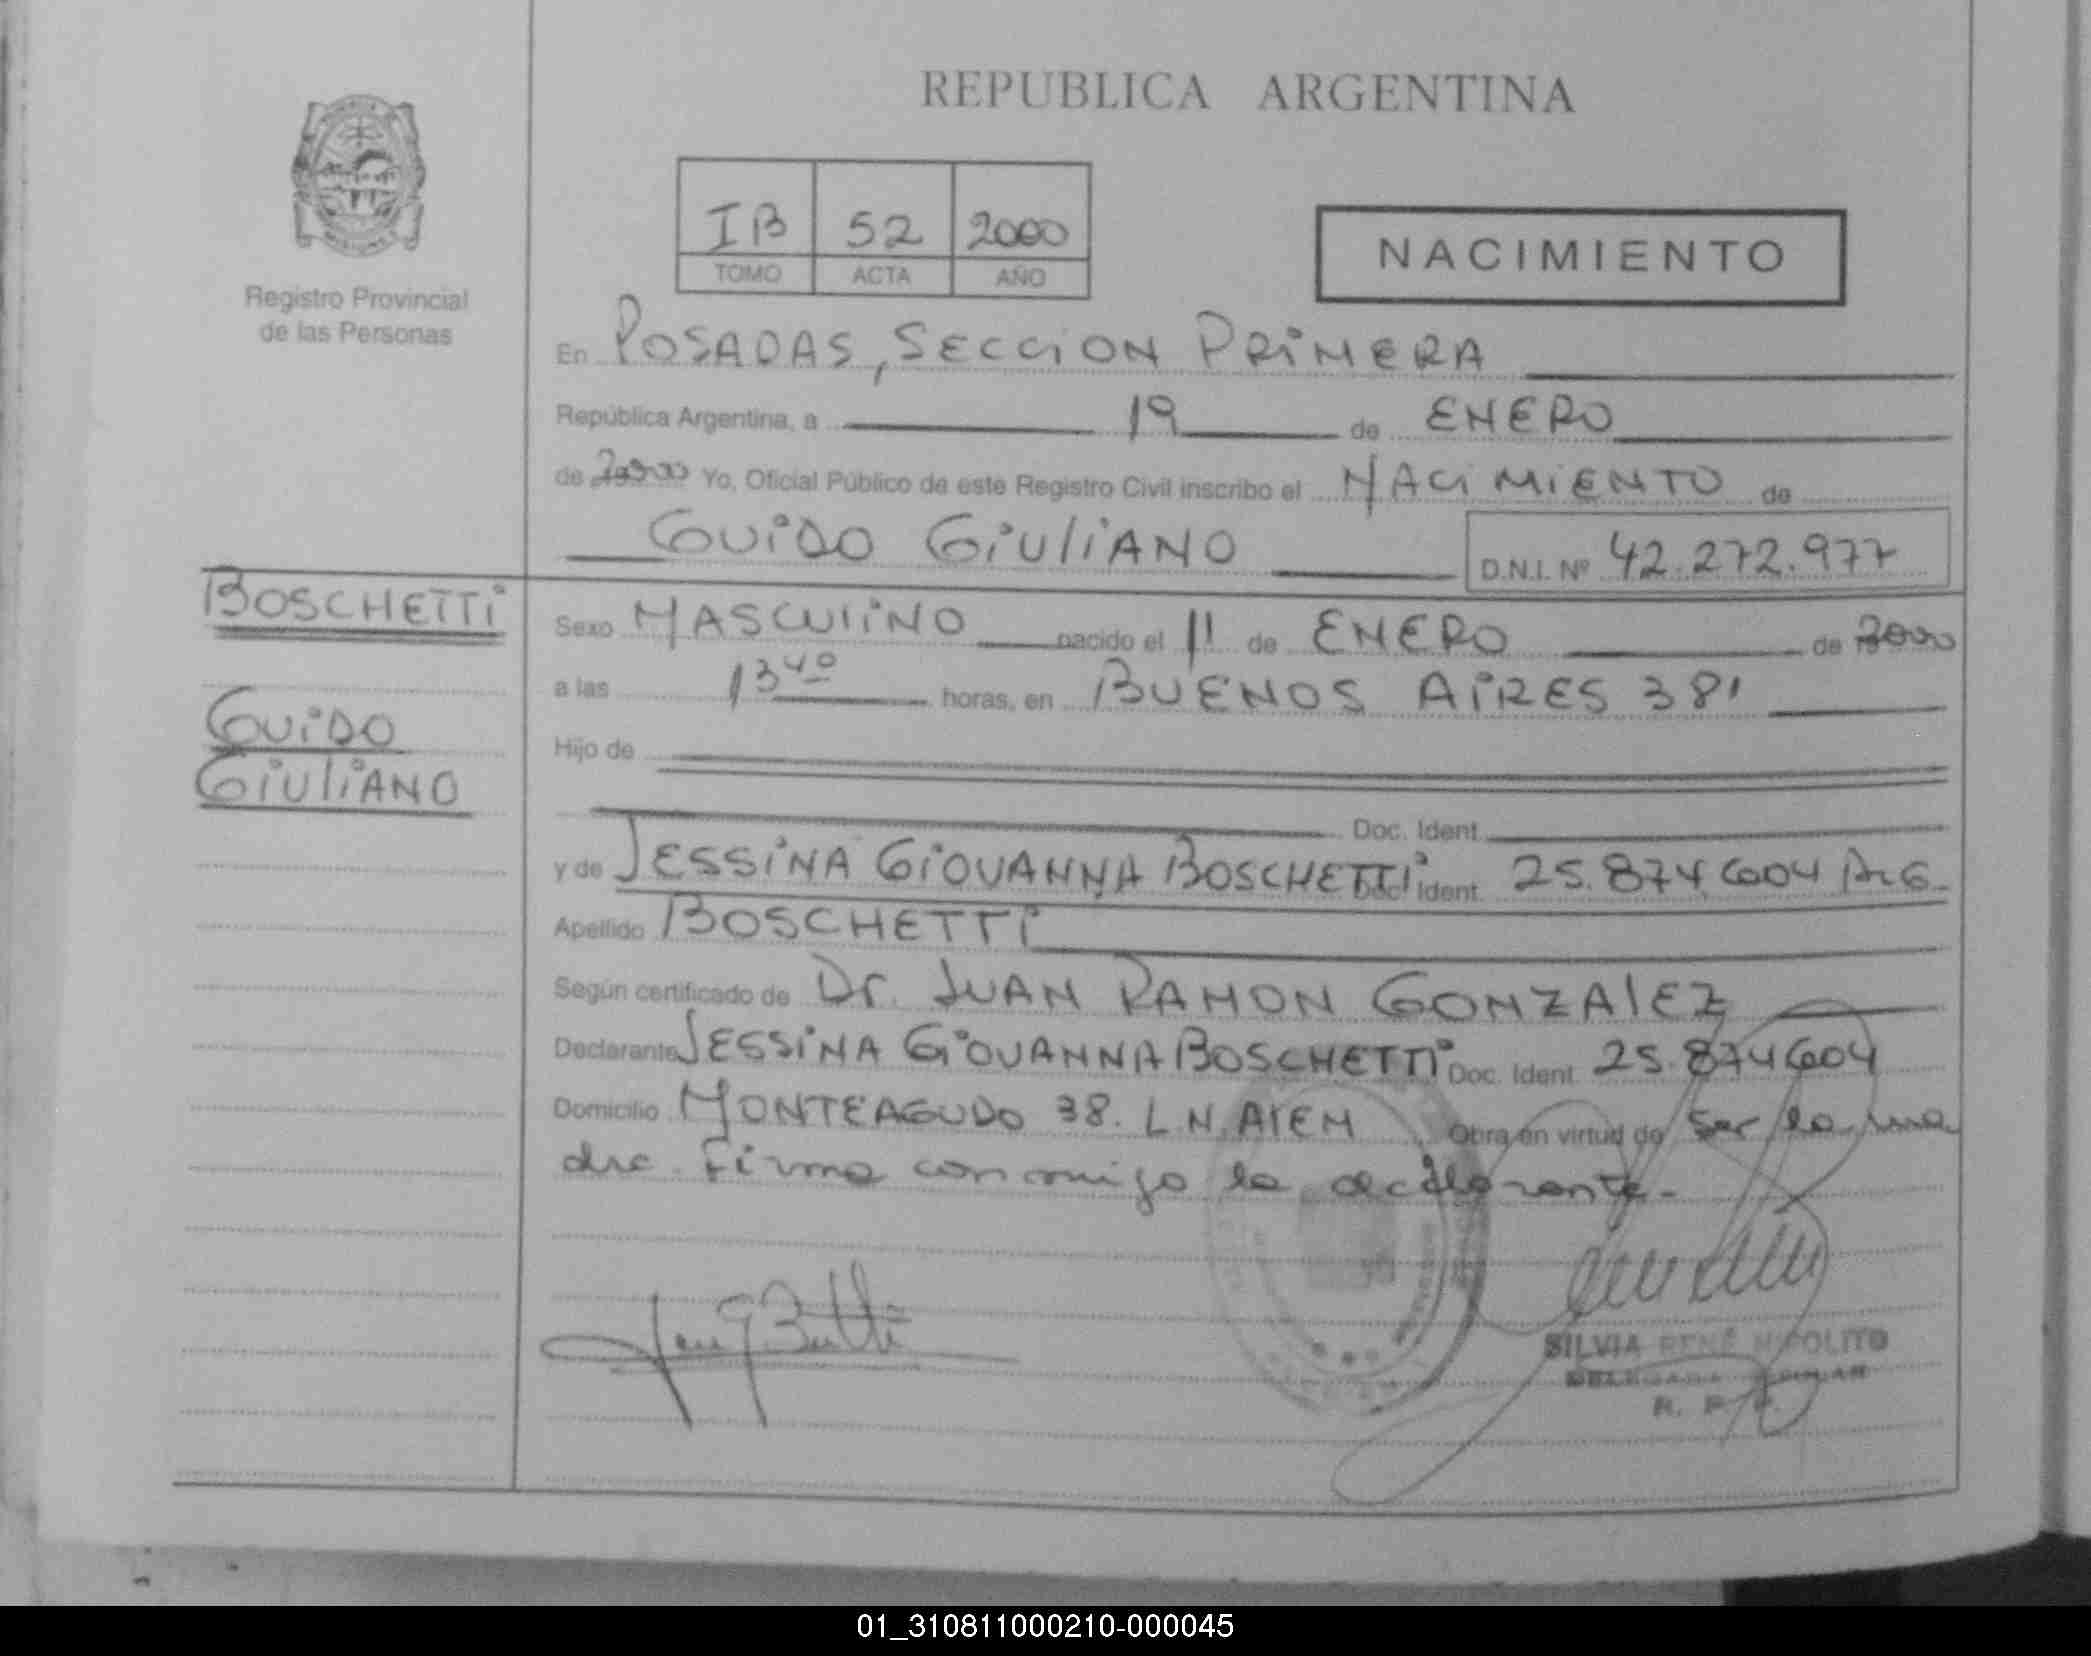 REPUBLICA ARGENTINA
Registro Provincial
de las Personas
IB 52 2000
TOMO ACTA AÑO
NACIMIENTO
En POSADAS, SECCION PRIMERA
República Argentina, a 19 de ENERO
de 2000 Yo, Oficial Público de este Registro Civil inscribo el NACIMIENTO de
GUIDO GIULIANO D.N.I. Nº 42.272.977
BOSCHETTI
GUIDO
GIULIANO
Sexo MASCULINO nacido el 11 de ENERO de 2000
a las 13 40 horas, en BUENOS AIRES 381
Hijo de
Doc. Ident.
y de JESSINA GIOVANNA BOSCHETTI Doc. Ident. 25.874604 ARG.
Apellido BOSCHETTI
Según certificado de Dr. JUAN RAMON GONZALEZ
Declarante JESSINA GIOVANNA BOSCHETTI Doc. Ident. 25.874604
Domicilio MONTEAGUDO 38. L N. ALEM Obra en virtud de Ser la ma
dre. Firma conmigo la declarante.-
SILVIA RENÉ HIPOLITO
DELEGADA TITULAR
R. P. P.
01_310811000210-000045